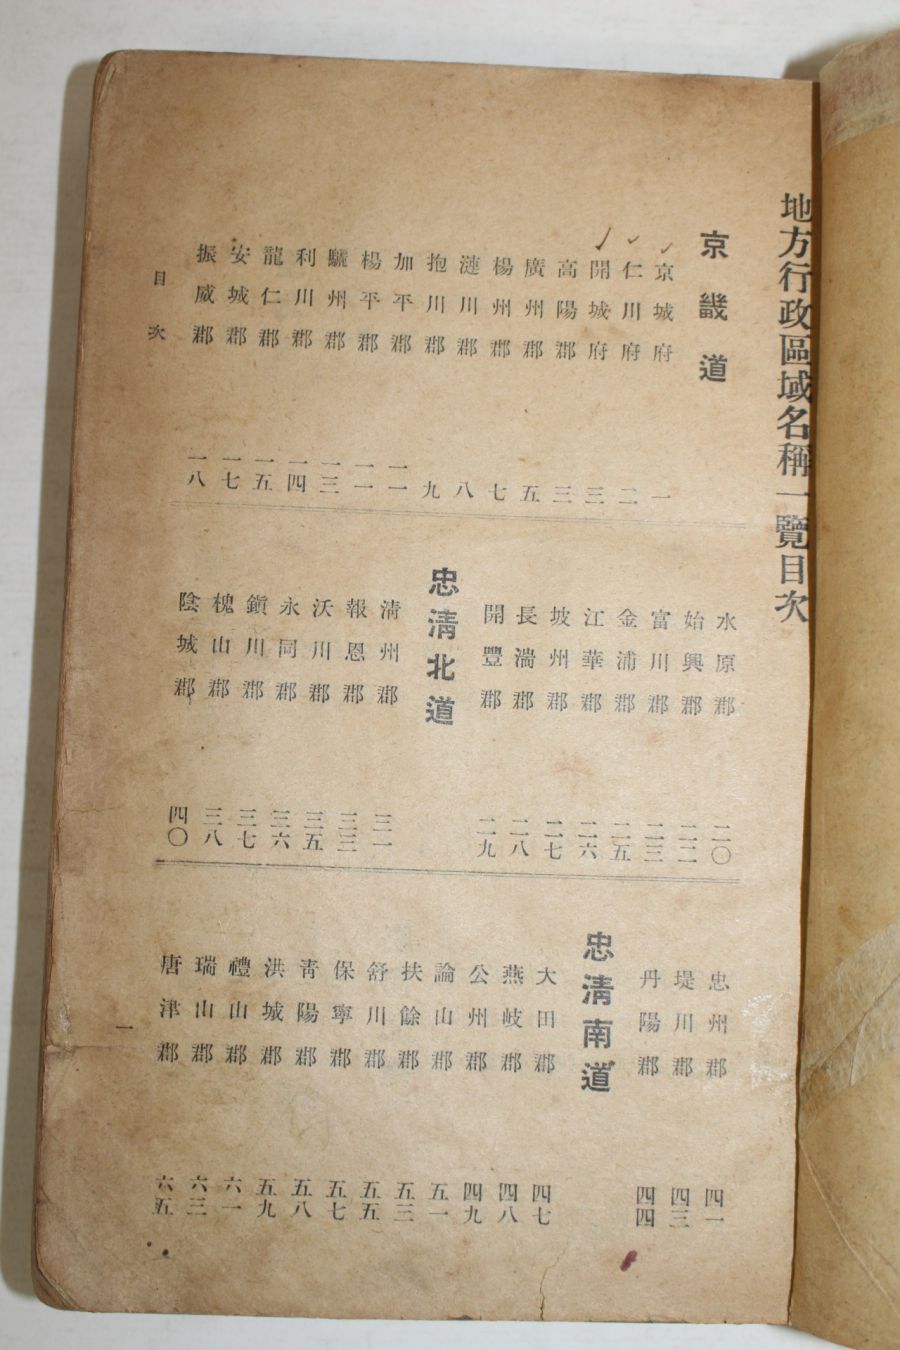 地方行政區域名稱一覽目次
京畿道
京城府 一
仁川府 二
開城府 三
高陽郡 三
廣州郡 五
楊州郡 七
漣川郡 八
抱川郡 九
加平郡 一一
楊平郡 一一
驪州郡 一三
利川郡 一四
龍仁郡 一五
安城郡 一七
振威郡 一八
水原郡 二〇
始興郡 二二
富川郡 二三
金浦郡 二五
江華郡 二六
坡州郡 二七
長湍郡 二八
開豐郡 二九
忠淸北道
淸州郡 三一
報恩郡 三三
沃川郡 三五
永同郡 三六
鎭川郡 三七
槐山郡 三八
陰城郡 四〇
忠州郡 四一
堤川郡 四三
丹陽郡 四四
忠淸南道
大田郡 四七
燕岐郡 四八
公州郡 四九
論山郡 五一
扶餘郡 五三
舒川郡 五五
保寧郡 五七
靑陽郡 五八
洪城郡 五九
禮山郡 六一
瑞山郡 六三
唐津郡 六五
目次
一